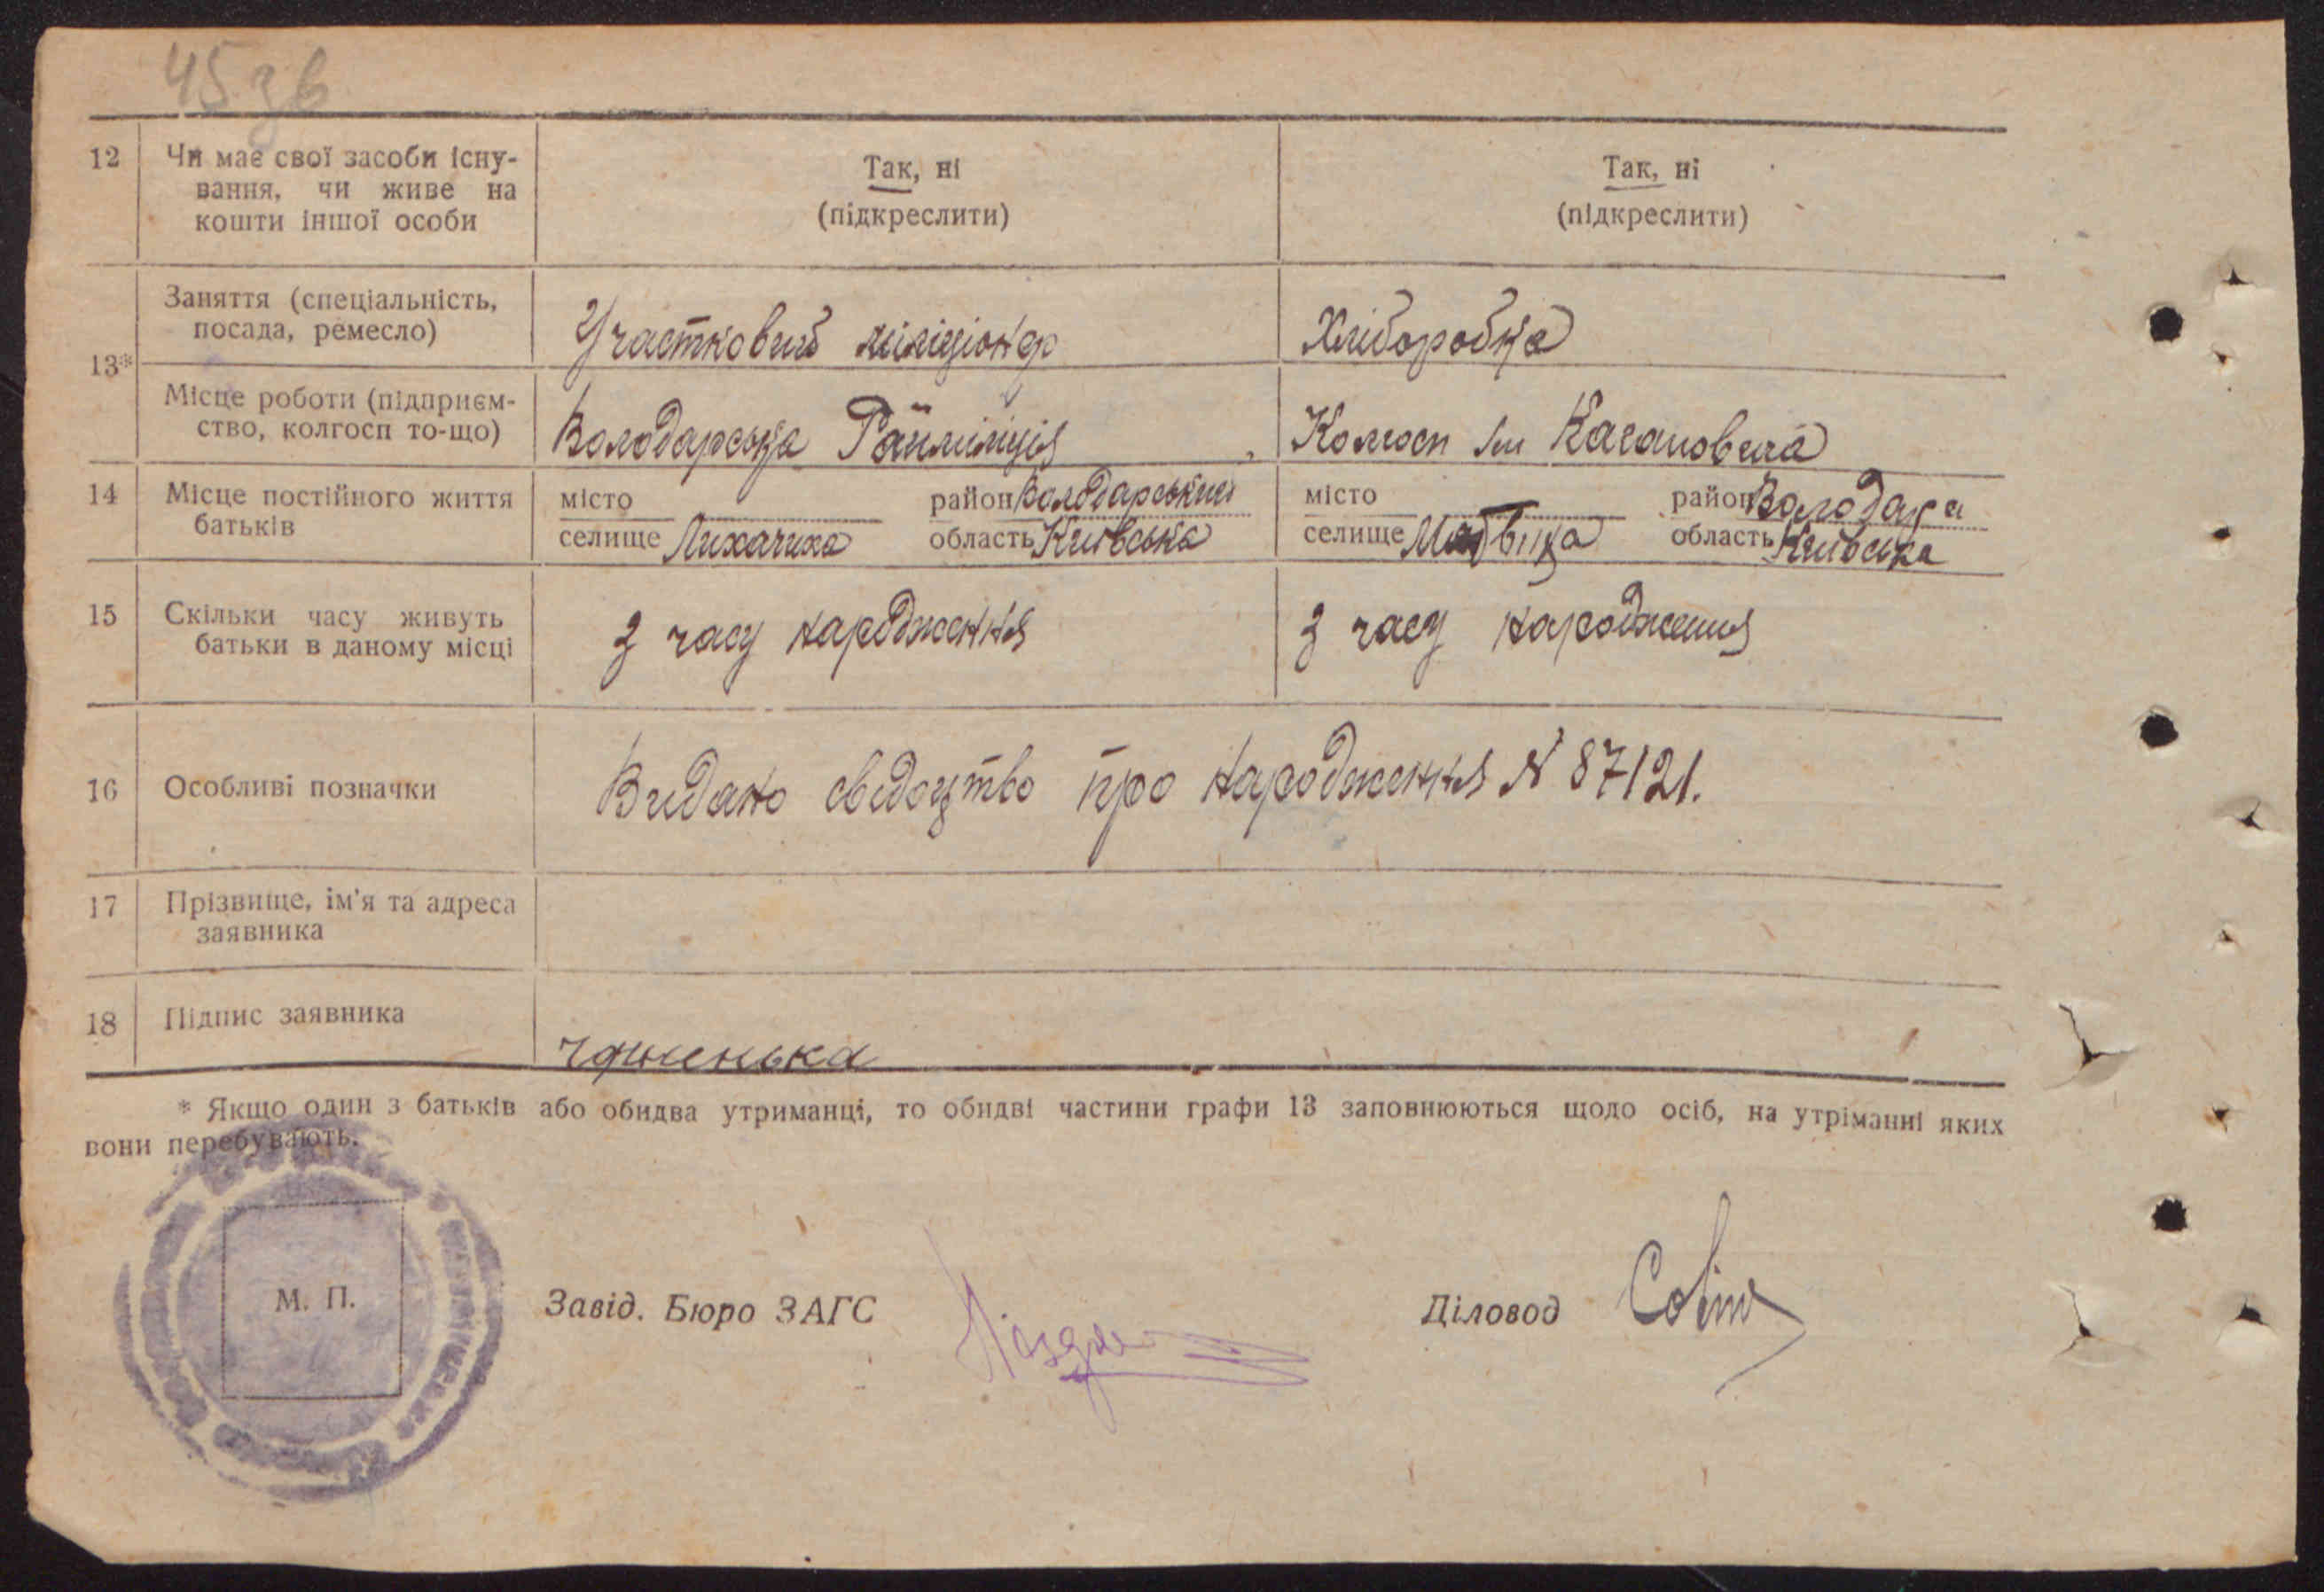 45 зв
12 Чи має свої засоби існу-
вання, чи живе на
кошти іншої особи
Так, ні
(підкреслити)
Так, ні
(підкреслити)
13*
Заняття (спеціальність,
посада, ремесло)
Участковий міліціонер
Хліборобка
Місце роботи (підприєм-
ство, колгосп то-що)
Володарська Райміліція
Колгосп Ім Кагановича
14 Місце постійного життя
батьків
місто район Володарський
селище Лихачиха область Київська
місто район Володарка
селище область Київська
15 Скільки часу живуть
батьки в даному місці
З часу народження
З часу народження
16 Особливі позначки
Видано свідоцтво про народження N 87121.
17 Прізвище, ім'я та адреса
заявника
18 Підпис заявника
* Якщо один з батьків або обидва утриманці, то обидві частини графи 13 заповнюються щодо осіб, на утріманні яких
вони перебувають.
М. П.
Завід. Бюро ЗАГС
Діловод